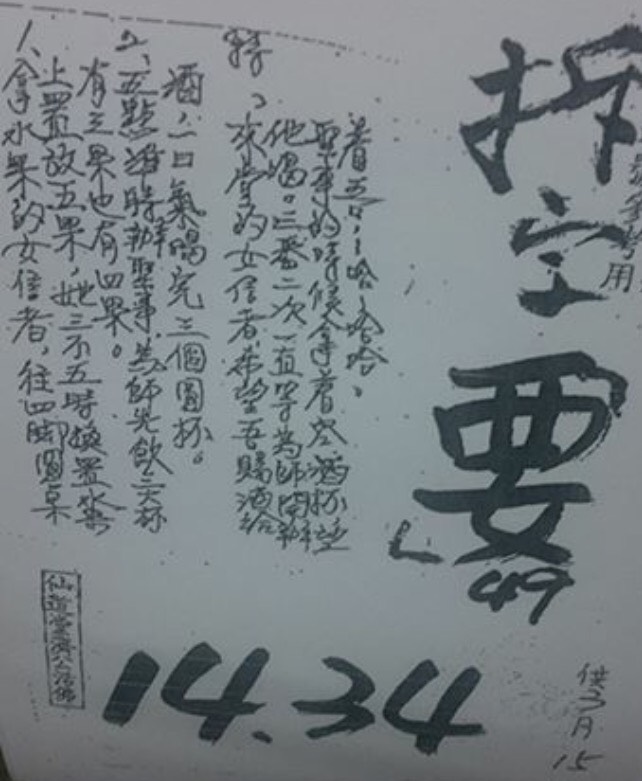 拆字
要
49
14.34
1、拿水果的女信者,往四脚圓桌
上置放五果,她三不五時換置水果
有三果也有四果。
2、五點準時辦聖事,為師先飲三大杯
酒,一口氣喝完三個圓杯。
特、來堂的女信者,希望吾賜酒給
他喝。三番二次一直等為師開辦
聖事的時候拿著空酒杯望
著吾,哈哈哈。
仙誼堂濟公活佛
用
月
15